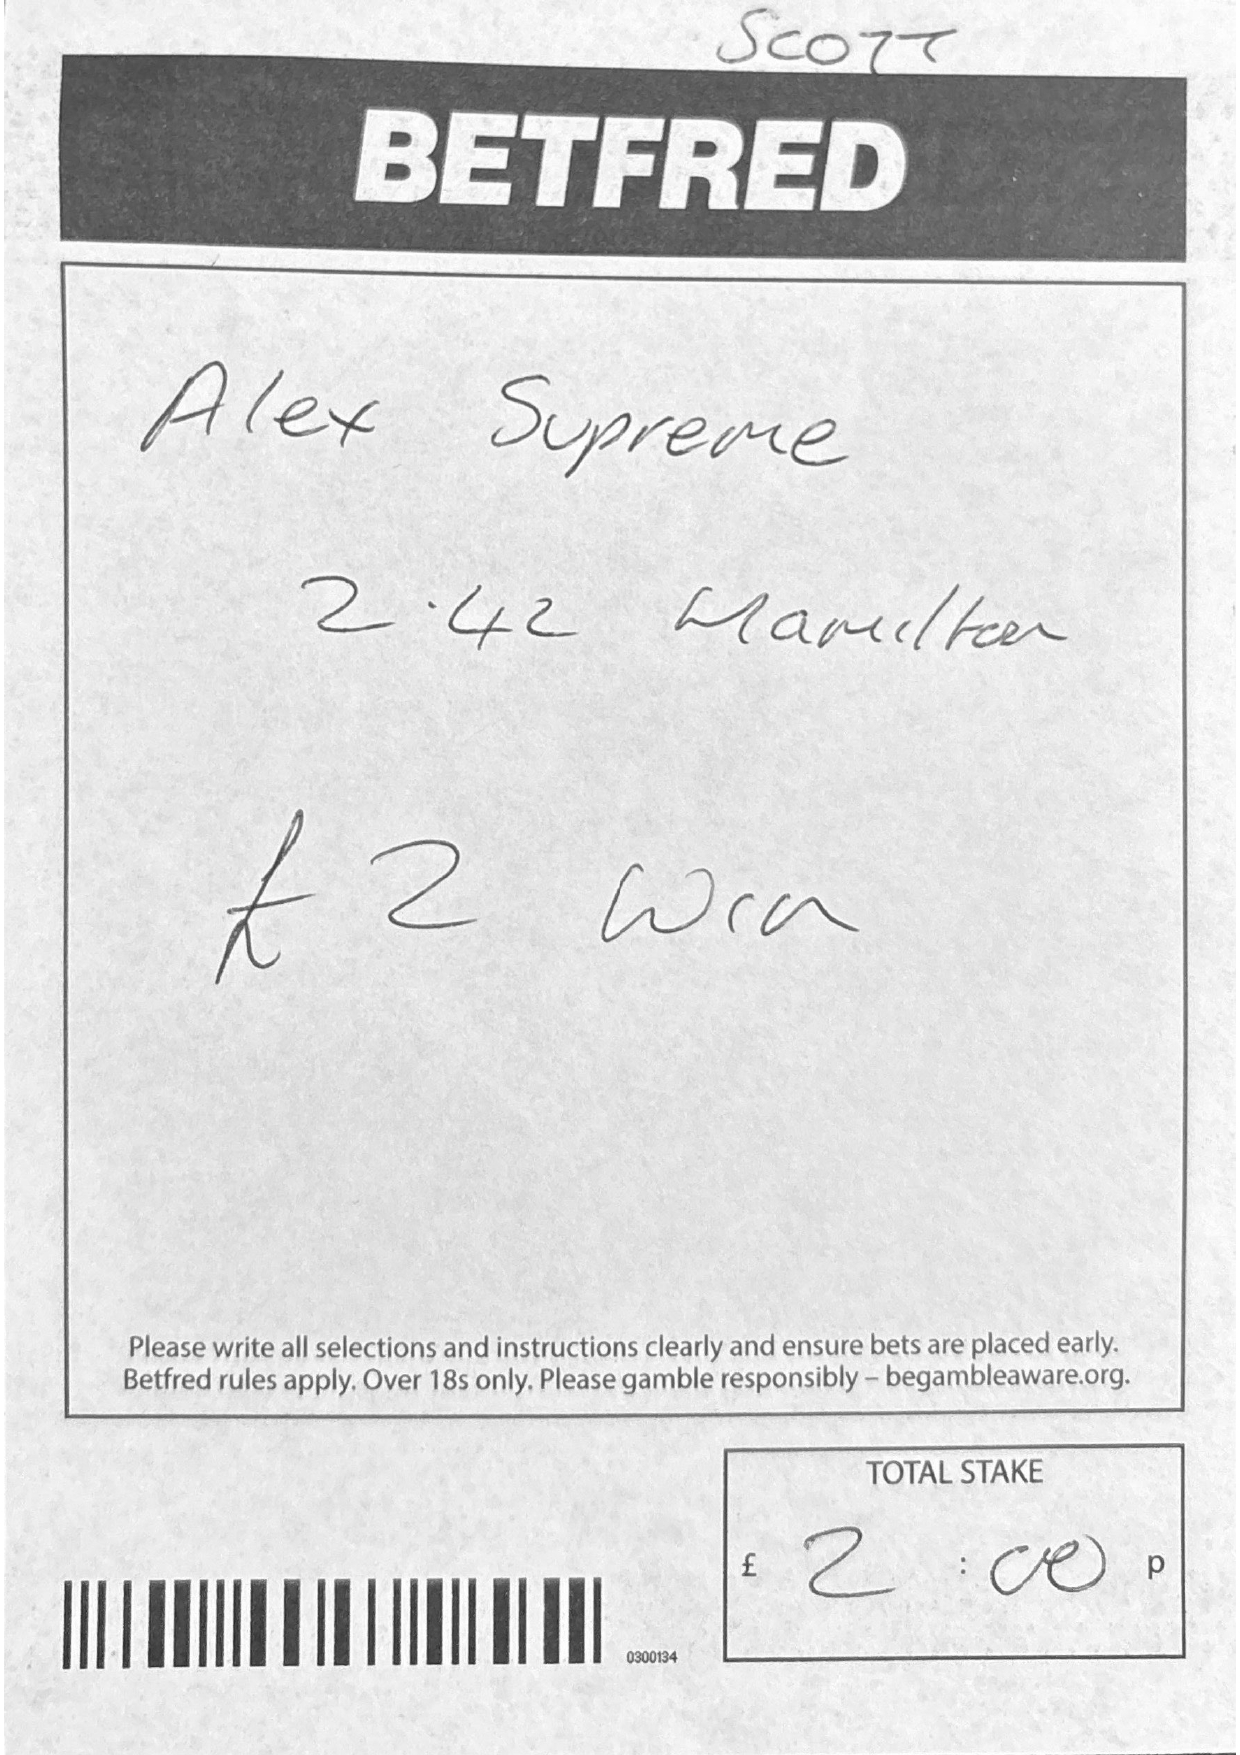 SCOTT
BETFRED
Alex Supreme
2.42 Hamilton
£2 Win
Please write all selections and instructions clearly and ensure bets are placed early.
Betfred rules apply. Over 18s only. Please gamble responsibly – begambleaware.org.
TOTAL STAKE
£ 2 : 00 p
0300134